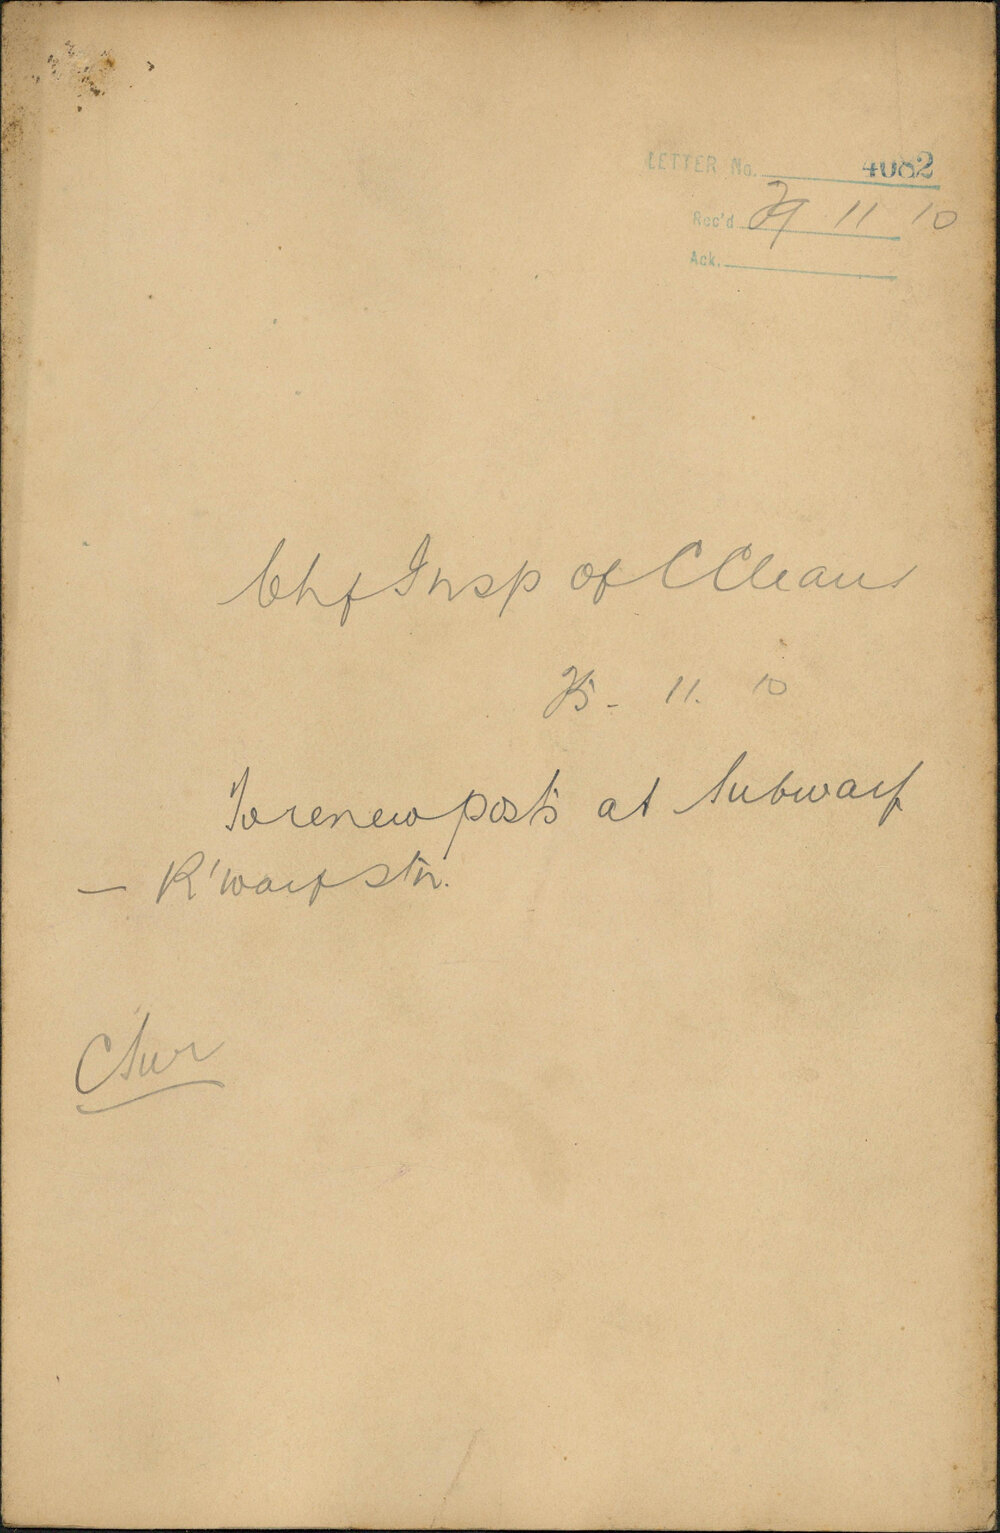 LETTER No. 4082
Rec'd 29 11 10
Ack.
Chf Insp of C Clean
25 - 11. 10
To renew posts at Subwarf
— R'warf Stn.